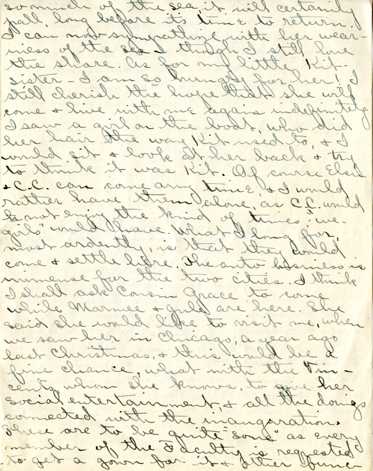 so much of the sea, it will certainly
pall, long before it's time to return.
I can not sympathize with her wear-
iness of the sea, though I still love
the shore. As for my little Kit-
sister. I am so hungry for her! I
still cherish the hope that she will
come & live with me again indefinitely.
I saw a girl on the boat, who did
her hair the way Kit used to, & I
would sit & look at her back & try
to think it was Kit. Of course Elsa
& C.C. can come any time & I would
rather have them alone, as C.C. would
not enjoy the kind of times "we-
girls" would have. What I long for,
most ardently, is that they would
come & settle here. The auto business is
immense for the two cities. I think
I shall ask Cousin Grace to come
while Marnee & are here. She
said she would like to visit me, when
we saw her in Chicago, a year ago
last Christmas, & this would be a
fine chance, what with the Vin-
cents, whom she knows, to give her
social entertainment, & all the doings
connected with the inauguration.
These are to be quite "some" as every
member of the Faculty is requested
to get a gown for it